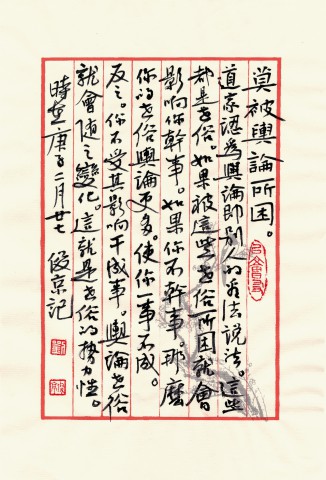 莫被輿論所困。
道家認為輿論即別人的看法說法。這些
都是世俗。如果被這些世俗所困就會
影响你幹事。如果你不幹事。那麼
你的世俗輿論更多。使你一事不成。
反之。你不受其影响干成事。輿論世俗
就會随之變化。這就是世俗的势力性。
時在庚子二月廿七 俊京記